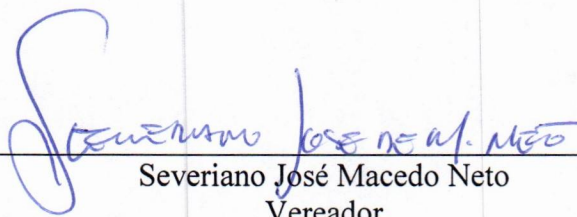 Severiano José de M. Neto
Severiano José Macedo Neto
Vereador